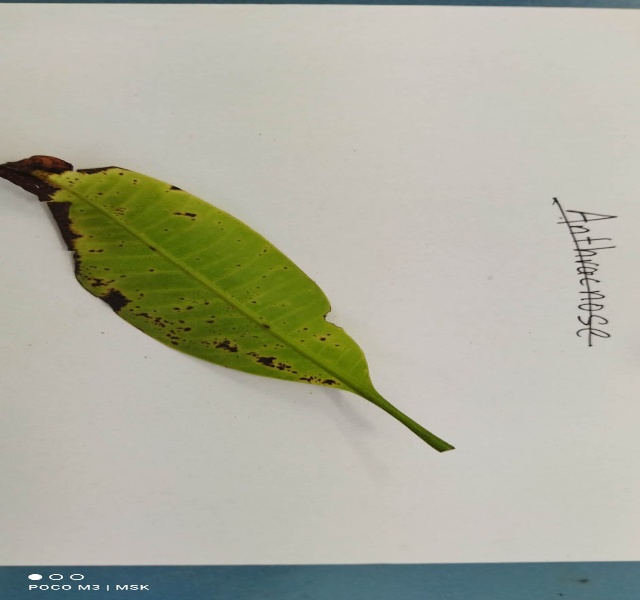 Anthracnose
POCO M3 | MSK